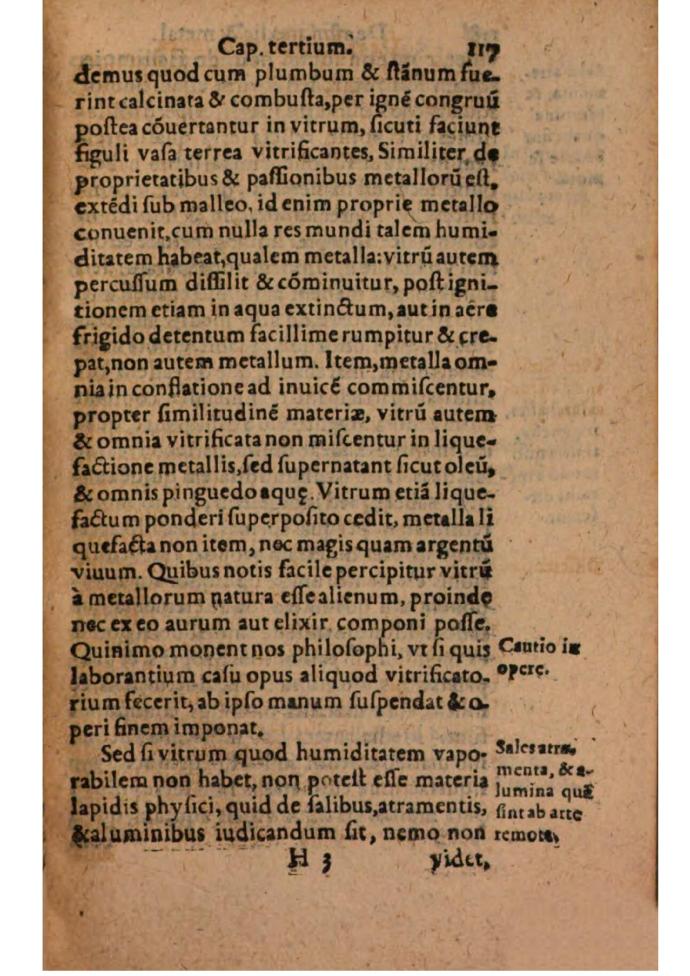 Cap. tertium. 117
demus quod cum plumbum & ſtánum fue-
rint calcinata & combuſta, per igné congruū
poſtea cóuertantur in vitrum, ſicuti faciunt
figuli vaſa terrea vitrificantes, Similiter de
proprietatibus & paſſionibus metallorū eſt,
extédi ſub malleo, id enim proprie metallo
conuenit, cum nulla res mundi talem humi-
ditatem habeat, qualem metalla: vitrū autem
percuſſum diſſilit & cóminuitur, poſt igni-
tionem etiam in aqua extinctum, aut in aëre
frigido detentum facillime rumpitur & cre-
pat, non autem metallum. Item, metalla om-
nia in conflatione ad inuicé commiſcentur,
propter ſimilitudiné materiæ, vitrū autem
& omnia vitrificata non miſcentur in lique-
factione metallis, ſed ſupernatant ſicut oleū,
& omnis pinguedo aquę. Vitrum etiã lique-
factum ponderi ſuperpoſito cedit, metalla li
quefacta non item, nec magis quam argentū
viuum. Quibus notis facile percipitur vitrū
à metallorum natura eſſe alienum, proinde
nec ex eo aurum aut elixir componi poſſe.
Quinimo monent nos philoſophi, vt ſi quis
laborantium caſu opus aliquod vitrificato-
rium fecerit, ab ipſo manum ſuſpendat & o-
peri finem imponat.
Cautio in
opere.
Sed ſi vitrum quod humiditatem vapo-
rabilem non habet, non poteſt eſſe materia
lapidis phyſici, quid de ſalibus, atramentis,
& aluminibus iudicandum ſit, nemo non
Sales atra-
menta, & a-
lumina quã
ſint ab arte
remota,
H 3 videt,